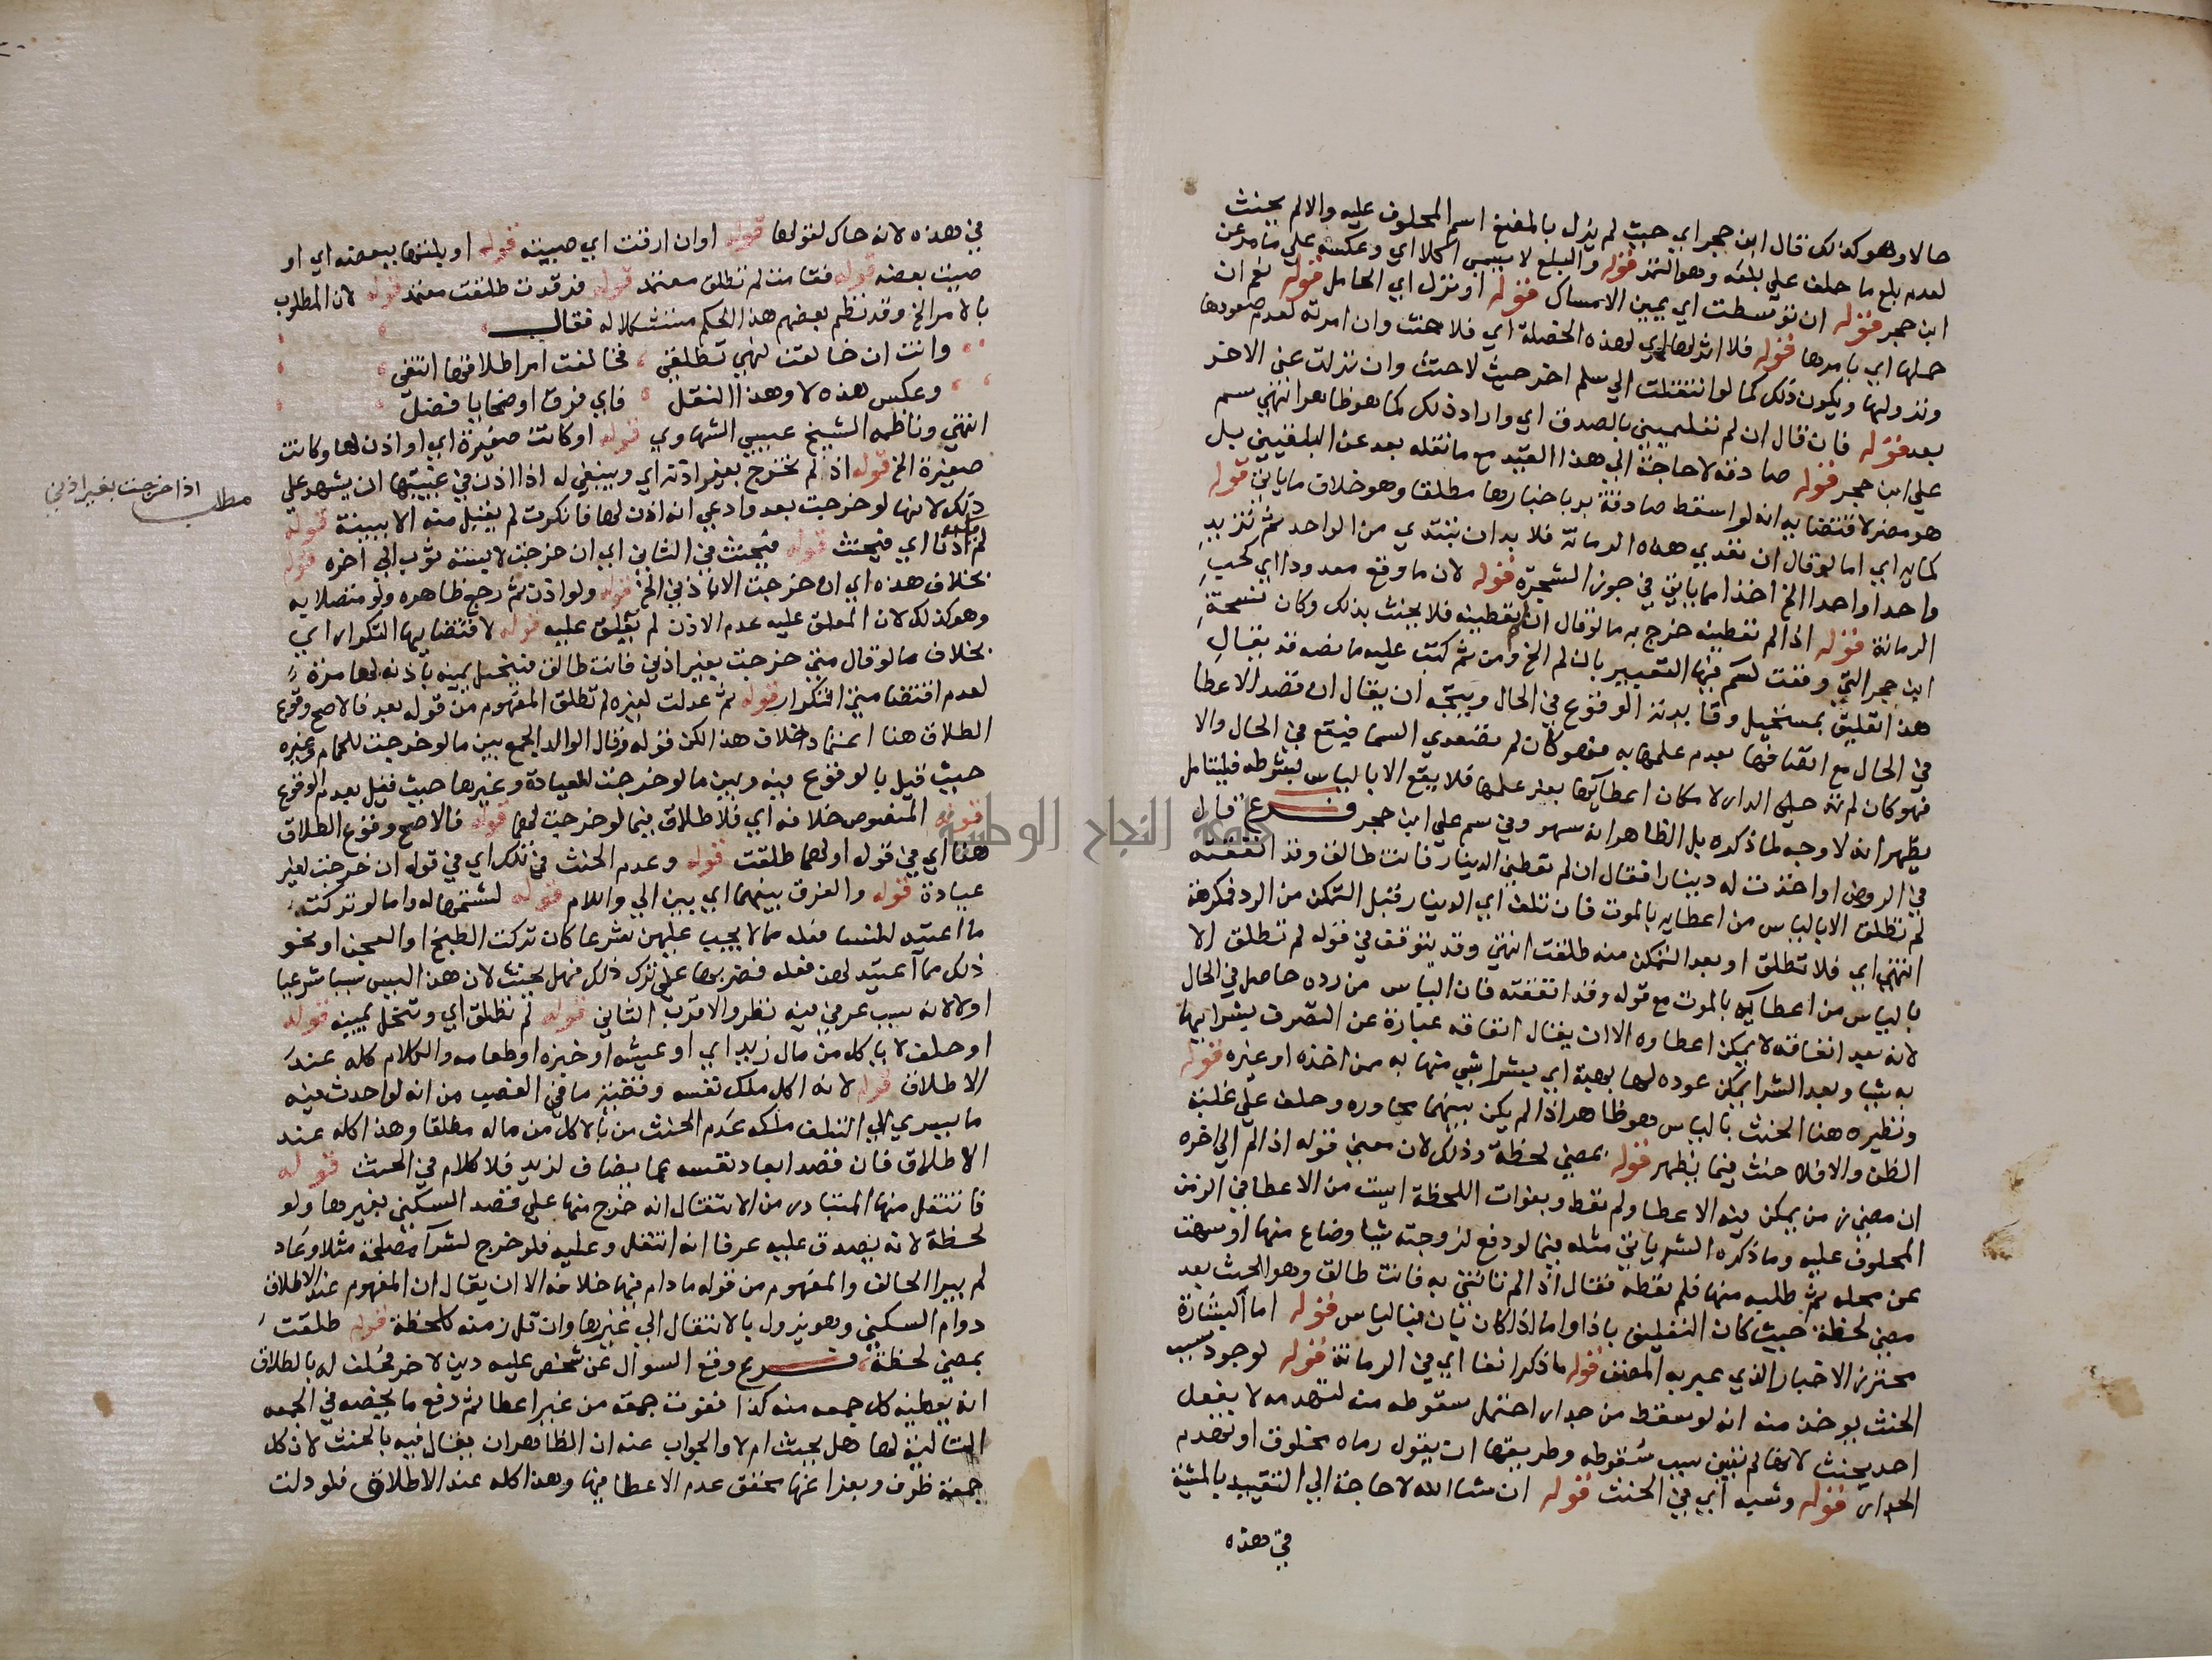 حالا وهو كذلك قال ابن حجر اي حيث لم يزل بالمضغ اسم المحلوف عليه والا لم يحنث
لعدم بلع ما حلف على بلعه وهو التمر قوله والبلع لا يسمى اكلا اي وعكسه على ما مر عن
ابن حجر قوله ان توسطت اي يمين الامساك قوله او نزل اي الحامل قوله نعم ان
حملها اي بامرها قوله فلا اثر لها اي لهذه الخصلة اي فلا حنث وان امرته لعدم صعودها
ونزولها ويكون ذلك كما لو انتقلت الى سلم اخر حيث لا حنث وان نزلت عن الاخر
بعد قوله فان قال ان لم تعلميني بالصدق اي واراد ذلك كما هو ظاهر انتهى سم
على ابن حجر قوله صادقة لا حاجة الى هذا القيد مع ما نقله بعد عن البلقيني بل
هو مضر لاقتضايه انه لو اسقط صادقة بر باخبارها مطلقا وهو خلاف ما ياتي قوله
كمايه اي اما لو قال ان تعدي هذه الرمانة فلا بد ان تبتدي من الواحد ثم تزيد
واحدا واحدا الخ اخذا مما ياتي في جوز الشجرة قوله لان ما وقع معدودا اي كحب
الرمانة قوله اذا لم تعطينه خرج به ما لو قال ان تعطينه فلا يحنث بذلك وكان نسخة
ابن حجر التي وقفت لسم فيها التعبير بان لم الخ ومن ثم كتب عليه ما نصه قد يقال
هذا تعليق بمستحيل وقايدته الوقوع في الحال ويتجه ان يقال ان قصد الاعطا
في الحال مع اتفاقها بعدم علمها به فهو كان لم تصعدي السما فيقع في الحال والا
فهو كان لم تدخلي الدار لامكان اعطايها بعد علمها فلا يقع الا بالياس بشرطه فليتامل
يظهر انه لا وجه لما ذكره بل الظاهر انه سهو وفي سم على ابن حجر فرع قال
في الروض او اخذت له دينارا فقال ان لم تعطيني الدينار فانت طالق وقد انفقته
لم تطلق الا بالياس من اعطايه بالموت فان تلف اي الدينار قبل التمكن من الرد فمكرهة
انتهى اي فلا تطلق او بعد التمكن منه طلقت انتهى وقد يتوقف في قوله لم تطلق الا
بالياس من اعطايه بالموت مع قوله وقد انفقته فان الياس من رده حاصل في الحال
لانه بعد انفاقه لا يمكن اعطاوه الا ان يقال انفاقه عبارة عن التصرف بشرايها
به شيا وبعد الشرا يمكن عوده لها بهبة اي بشرا شي منها به ممن اخذه او غيره قوله
ونظيره هنا الحنث بالياس وهو ظاهر اذا لم يكن بينهما محاوره وحلف على غلبة
الظن والا فلا حنث فيما يظهر قوله بمضي لحظة وذلك لان معنى قوله اذا لم الى اخره
ان مضى زمن يمكن فيه الاعطا ولم تعط وبفوات اللحظة ايست من الاعطا في الزمن
المحلوف عليه وما ذكره الشر ياتي مثله فيما لو دفع لزوجته شيا وضاع منها او سرقت
من محله ثم طلبه منها فلم تعطه فقال اذا لم تاتني به فانت طالق وهو الحنث بعد
مضي لحظة حيث كان التعليق باذا واما اذا كان بان فبالياس قوله اما البشارة
محترز الاخبار الذي عبر به المصنف قوله ما ذكر انفا اي في الرمانة قوله لوجود سبب
الحنث يوخذ منه انه لو سقط من جدار احتمل سقوطه منه لتهدمه لا بفعل
احد يحنث لانها لم تبين سبب سقوطه وطريقها ان يقول رماه مخلوق او تهدم
الجدار قوله وشبه اي في الحنث قوله ان شا الله لا حاجة الى التقييد بالمشية
في هذه
في هذه لانه حاك لقولها قوله او ان ارقت اي صببته قوله او بلتها ببعضه اي او
صببت بعضه قوله فقامت لم تطلق معتمد قوله فرقدت طلقت معتمد قوله لان المطلوب
بالامر الخ وقد نظم بعضهم هذا الحكم مستشكلا له فقال
وانت ان خالفت نهيي تطلقي فخالفت امرا طلاقها انتفى
وعكس هذه لا وهذا النقل فاي فرق اوضحا يا فضل
انتهى وناظمه الشيخ عيسى الشهاوي قوله او كانت صغيرة اي او اذن لها وكانت
صغيرة الخ قوله اذ لم تخرج بغير اذنه اي وينبغي له اذا اذن في غيبتها ان يشهد على
ذلك لانها لو خرجت بعد وادعى انه اذن لها فانكرت لم يقبل منه الا ببينة قوله
لم اذنا اي فيحنث قوله فيحنث في الثاني اي ان خرجت لابسة ثوب الى اخره قوله
بخلاف هذه اي ان خرجت الا باذني الخ قوله ولو اذن ثم رجع ظاهره ولو متصلا به
وهو كذلك لان المعلق عليه عدم الاذن لم تعلق عليه قوله لاقتضايها التكرار اي
بخلاف ما لو قال متى خرجت بغير اذني فانت طالق فتنحل يمينه باذنه لها مرة
لعدم اقتضا متى التكرار قوله ثم عدلت لغيره لم تطلق المفهوم من قوله بعد فالاصح وقوع
الطلاق هنا اعتماد خلاف هذا لكن قوله وقال الوالد الجمع بين ما لو خرجت للحمام وغيره
حيث قيل بالوقوع فيه وبين ما لو خرجت للعيادة وغيرها حيث قيل بعدم الوقوع
قوله المنصوص خلافه اي فلا طلاق فيما لو خرجت لهما قوله فالاصح وقوع الطلاق
هنا اي في قوله اولهما طلقت قوله وعدم الحنث في تلك اي في قوله ان خرجت لغير
عيادة قوله والفرق بينهما اي بين الى واللام قوله لشتمها له واما لو تركت
ما اعتيد للنسا فعله مما لا يجب عليهن شرعا كان تركت الطبخ او العجن او نحو
ذلك مما اعتيد لهن فعله فضربها على ترك ذلك فهل يحنث لان هذا ليس سببا شرعيا
او لا لانه سبب عرفي فيه نظر والاقرب الثاني قوله لم تطلق اي وتنحل يمينه قوله
او حلف لا ياكل من مال زيد اي او عيشه او خبزه او طعامه والكلام كله عند
الاطلاق قوله لانه اكل ملك نفسه وقضية ما في الغصب من انه لو احدث فيه
ما يسري الى التلف ملكه عدم الحنث من بالاكل من ماله مطلقا وهذا كله عند
الاطلاق فان قصد ابعاد نفسه عما يضاف لزيد فلا كلام في الحنث قوله
فانتقل منها المتبادر من الانتقال انه خرج منها على قصد السكنى بغيرها ولو
لحظة لانه يصدق عليه عرفا انه انتقل وعليه فلو خرج لشرا مصلحة مثلا وعاد
لم يبرا الحالف والمفهوم من قوله ما دام فيها خلافه الا ان يقال ان المفهوم عند الاطلاق
دوام السكنى وهو يزول بالانتقال الى غيرها وان قل زمنه كلحظة قوله طلقت
بمضي لحظة فرع وقع السوال عن شخص عليه دين لاخر فحلف له بالطلاق
انه يعطيه كل جمعه منه كذا ففوت جمعة من غير اعطا ثم دفع ما يخصه في الجمعه
التالية لها هل يحنث ام لا والجواب عنه ان الظاهر ان يقال فيه بالحنث لان كل
جمعة ظرف وبفراغها تحقق عدم الاعطا فيها وهذا كله عند الاطلاق فلو دلت
مطلب اذا خرجت بغير اذني
جامعة النجاح الوطنية